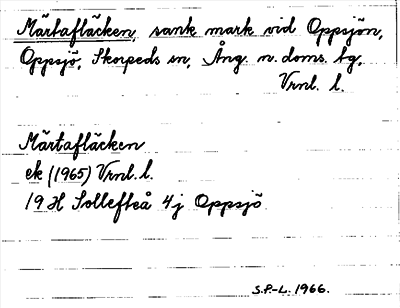 Märtafläcken, sank mark vid Oppsjön,
Oppsjö, Skorpeds sn, Ång. n. doms. tg,
Vrnl. l.
Märtafläcken
ek (1965) Vrnl. l.
19 H Sollefteå 4j Oppsjö
S.P.-L. 1966.